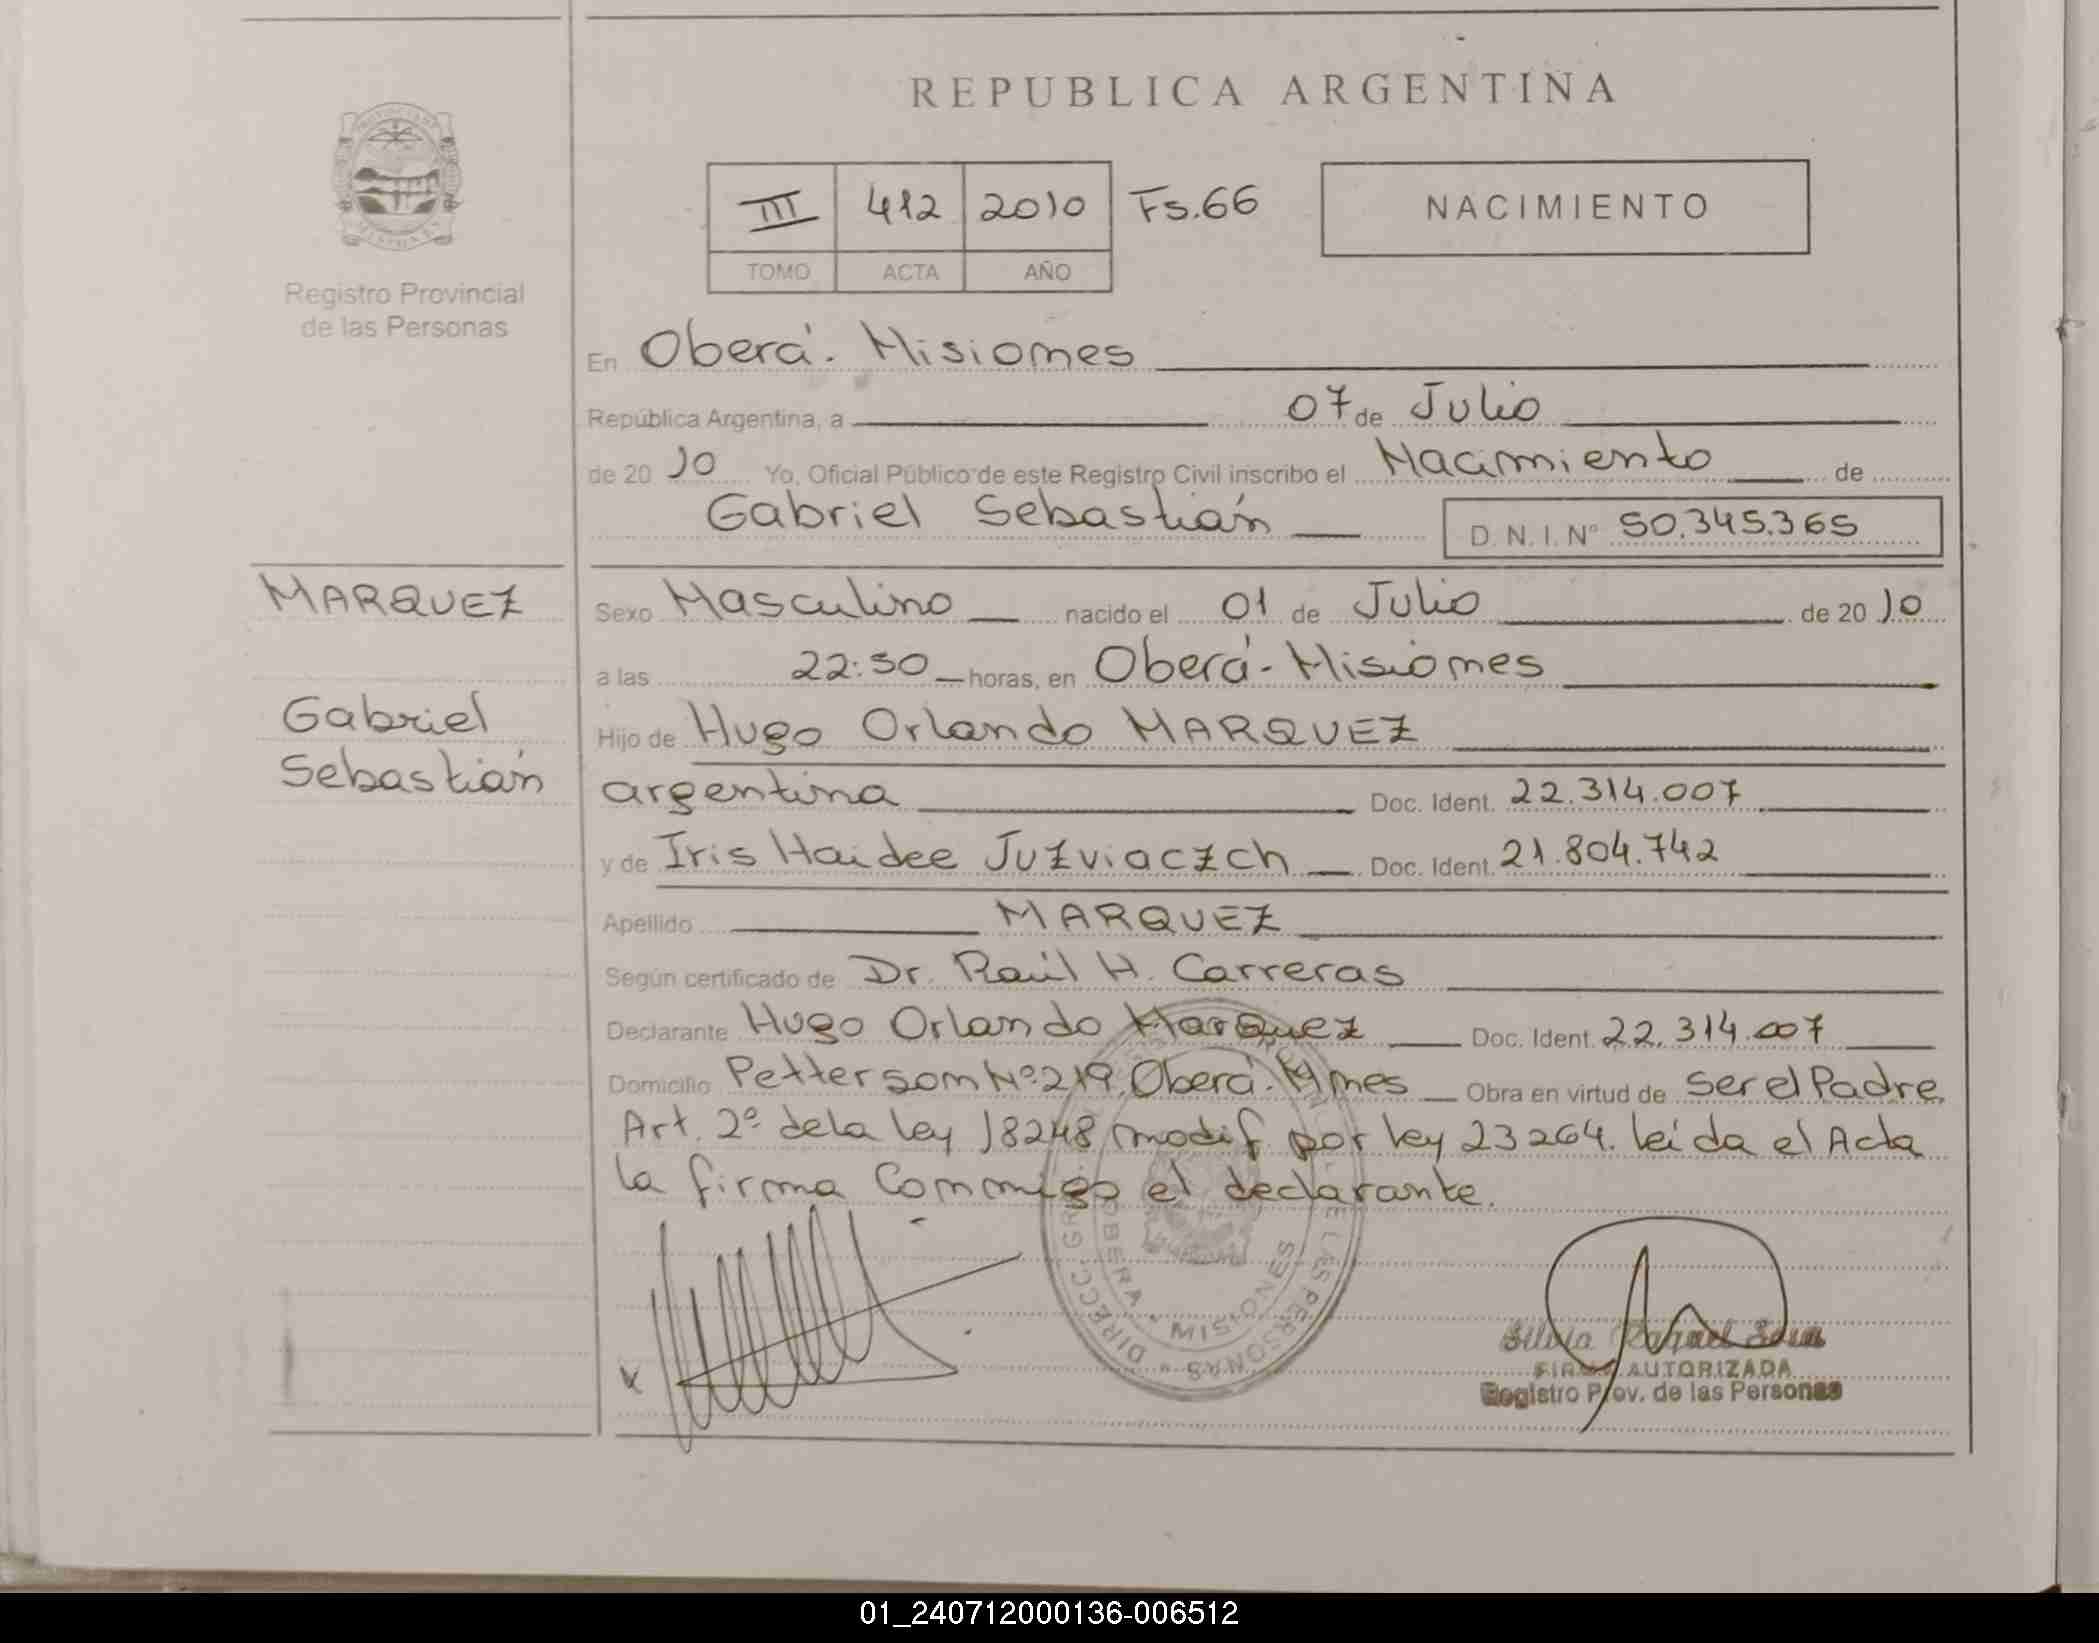 REPUBLICA ARGENTINA
III 412 2010 Fs.66 NACIMIENTO
TOMO ACTA AÑO
Registro Provincial
de las Personas
En Oberá. Misiones
República Argentina, a 07 de Julio
de 20 10 Yo, Oficial Público de este Registro Civil inscribo el Nacimiento de
Gabriel Sebastián D. N. I. Nº 50.345.365
MARQUEZ
Gabriel
Sebastián
Sexo Masculino nacido el 01 de Julio de 20 10
a las 22:50 horas, en Oberá-Misiones
Hijo de Hugo Orlando MARQUEZ
argentina Doc. Ident. 22.314.007
y de Iris Haidee Juzviaczch Doc. Ident. 21.804.742
Apellido MARQUEZ
Según certificado de Dr. Raúl H. Carreras
Declarante Hugo Orlando Marquez Doc. Ident. 22.314.007
Domicilio Petterson Nº 219. Oberá. Mnes Obra en virtud de Ser el Padre.
Art. 2º de la ley 18248 modif. por ley 23264. leída el Acta
la firma Conmigo el declarante.
OBERA - MISIONES
DE LAS PERSONAS
Silvia Raquel
FIRMA AUTORIZADA
Registro Prov. de las Personas
01_240712000136-006512